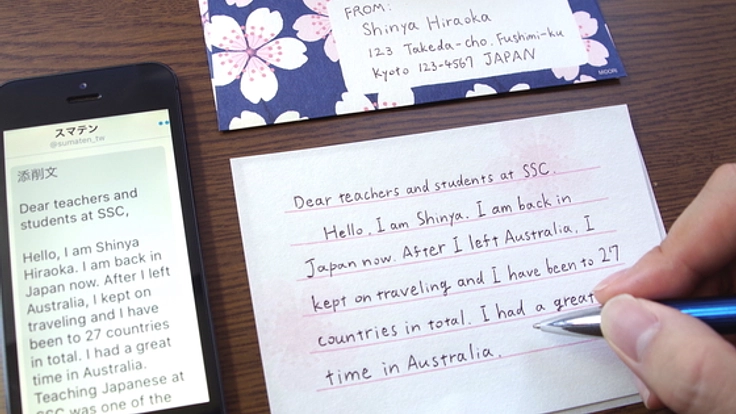 FROM:
Shinya Hiraoka
123 Takeda-cho, Fushimi-ku
Kyoto 123-4567 JAPAN
MIDORI
スマテン
@sumaten_tw
添削文
Dear teachers and
students at SSC,
Hello, I am Shinya
Hiraoka. I am back in
Japan now. After I left
Australia, I kept on
traveling and I have
been to 27 countries
in total. I had a great
time in Australia.
Teaching Japanese at
SSC was one of the
Dear teachers and students at SSC.
Hello, I am Shinya. I am back in
Japan now. After I left Australia, I
kept on traveling and I have been to 27
countries in total. I had a great
time in Australia.